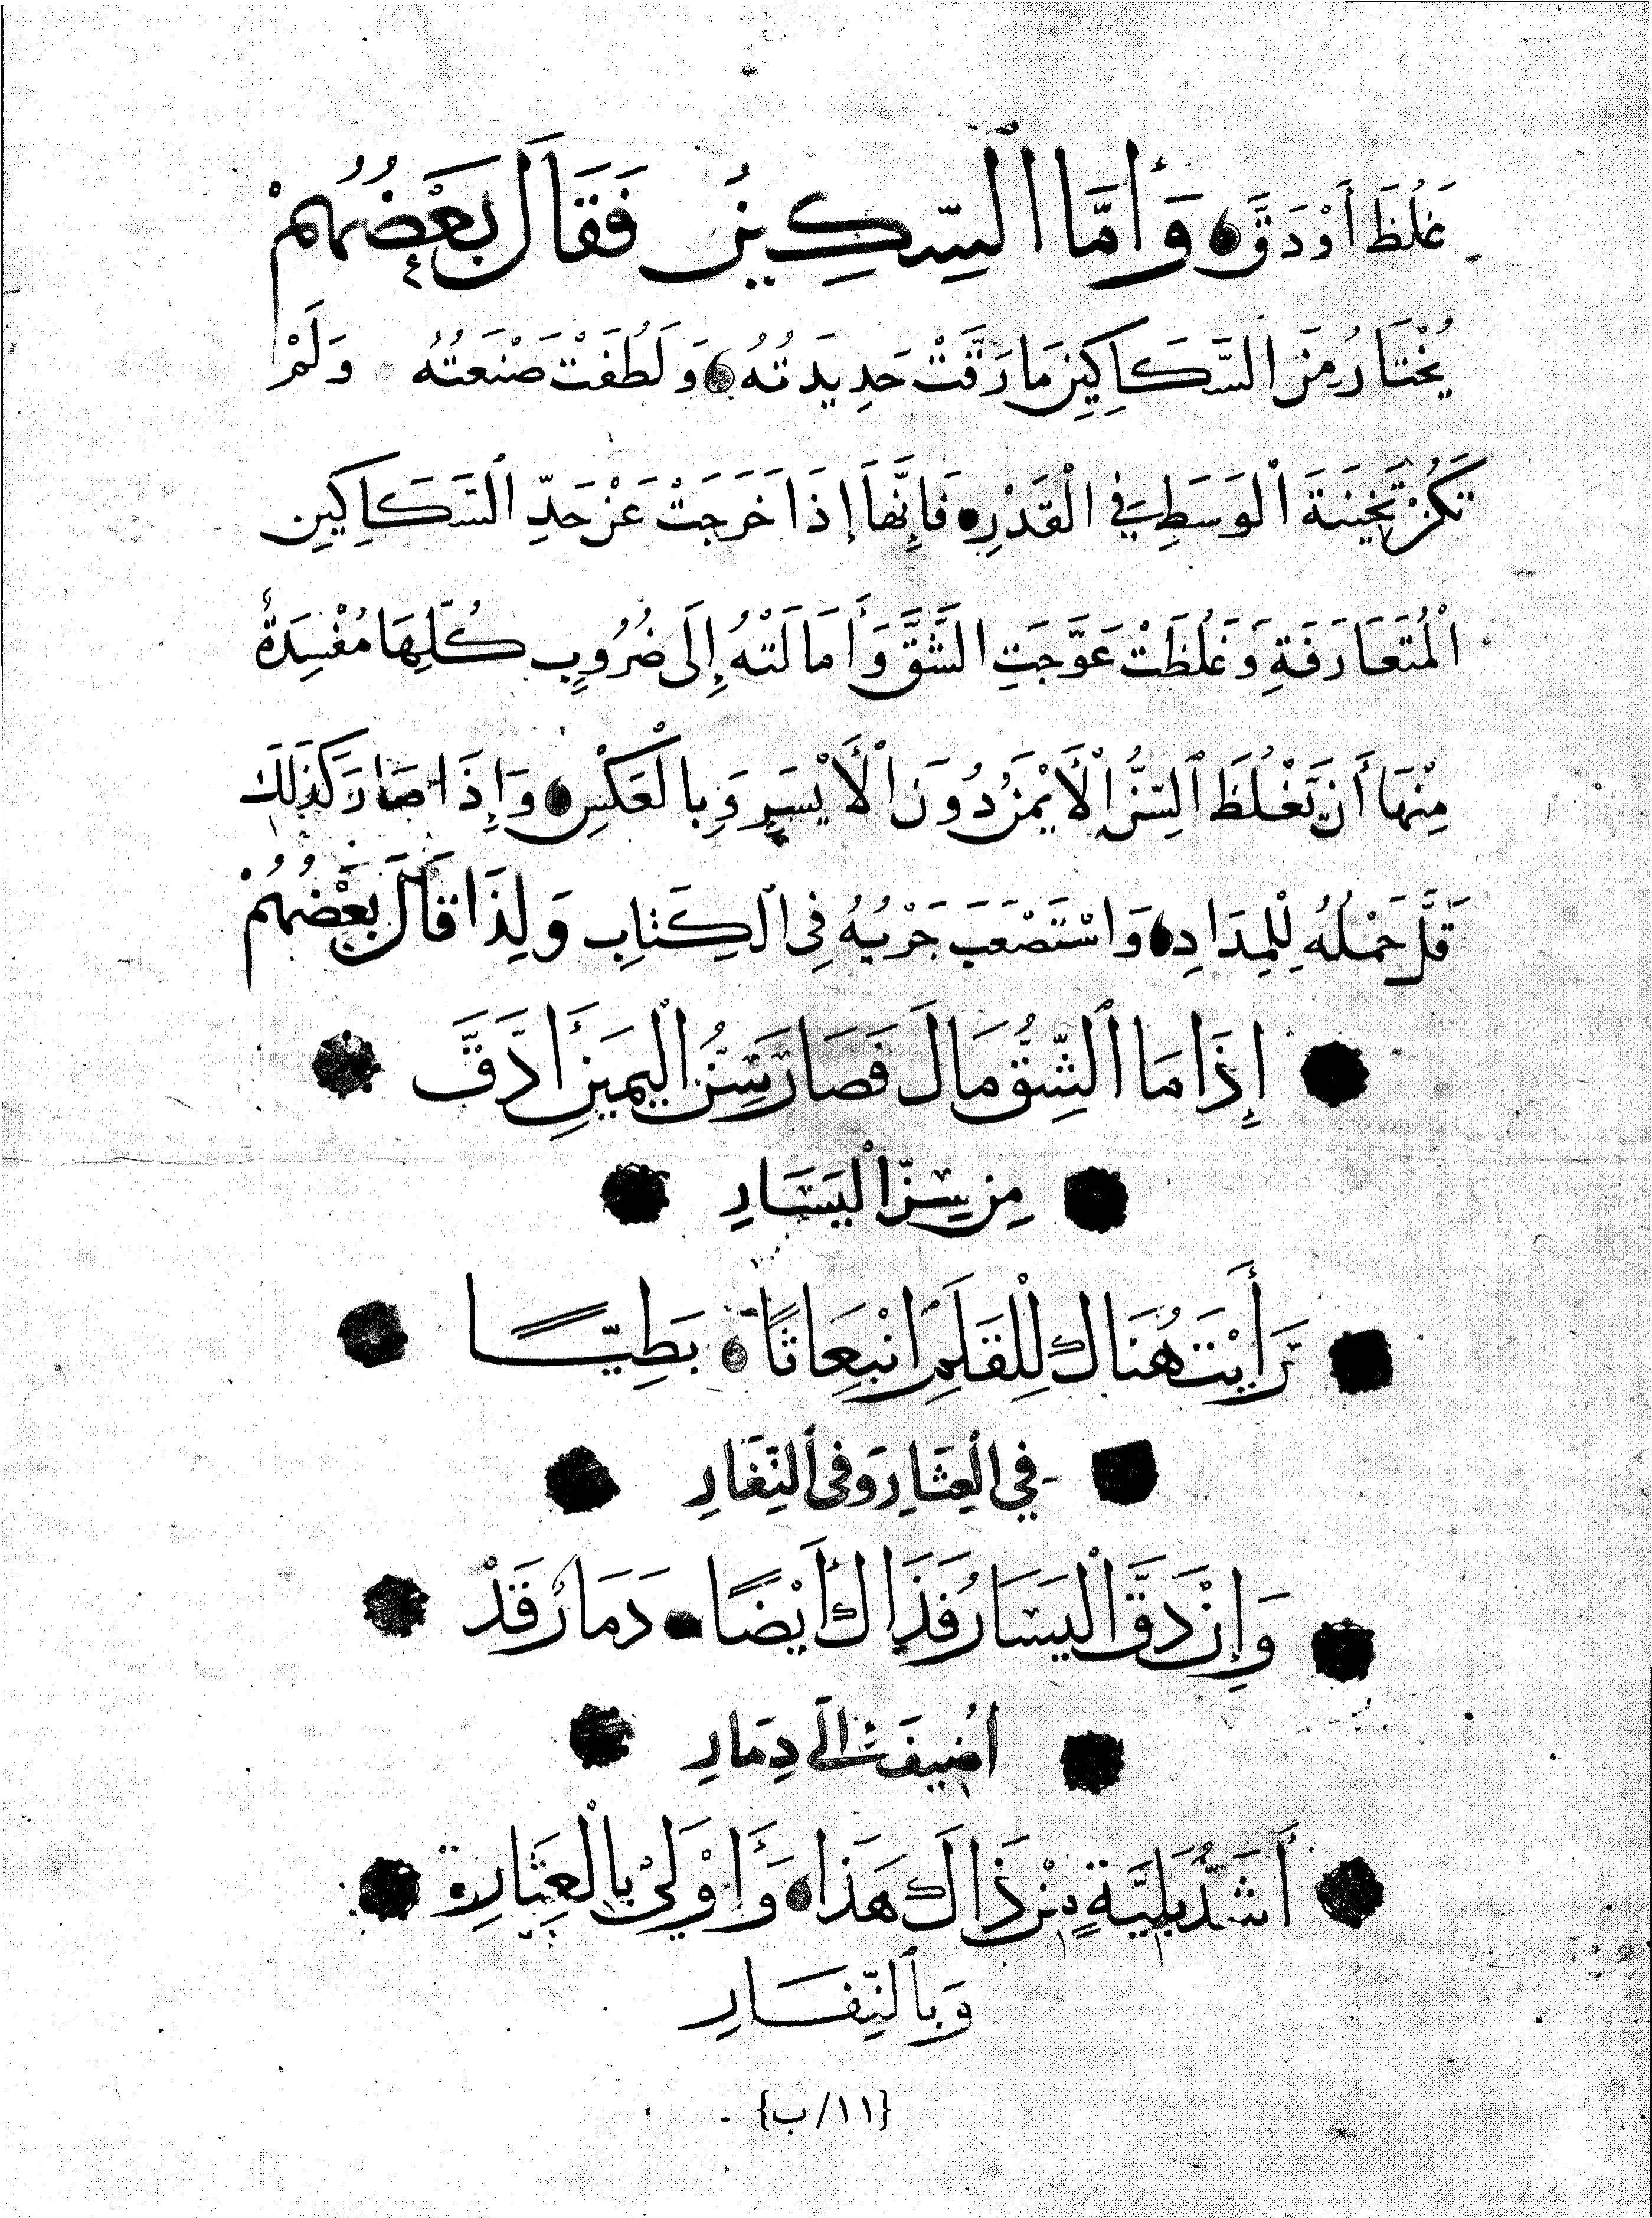 غَلُظَ أَوْ دَقَّ وَأَمَّا السِّكِّينُ فَقَالَ بَعْضُهُمْ
يُخْتَارُ مِنَ السَّكَاكِينِ مَا رَقَّتْ حَدِيدَتُهُ وَلَطُفَتْ صَنْعَتُهُ وَلَمْ
تَكُنْ ثَخِينَةَ الْوَسَطِ فِي الْقَدْرِ فَإِنَّهَا إِذَا خَرَجَتْ عَنْ حَدِّ السَّكَاكِينِ
الْمُتَعَارَفَةِ وَغَلُظَتْ عَوَّجَتِ الشَّقَّ وَأَمَالَتْهُ إِلَى ضُرُوبٍ كُلِّهَا مُفْسِدَةٌ
مِنْهَا أَنْ تَغْلُظَ السِّنُّ الْأَيْمَنُ دُونَ الْأَيْسَرِ وَبِالْعَكْسِ وَإِذَا صَارَ كَذَلِكَ
قَلَّ حَمْلُهُ لِلْمِدَادِ وَاسْتَصْعَبَ جَرْيُهُ فِي الْكِتَابِ وَلِذَا قَالَ بَعْضُهُمْ
إِذَا مَا الشِّقُّ مَالَ فَصَارَ سِنُّ الْيَمِينِ أَدَقَّ
مِنْ سِنِّ الْيَسَارِ
رَأَيْتَ هُنَاكَ لِلْقَلَمِ انْبِعَاثًا بَطِيًّا
فِي الْعِثَارِ وَفِي النِّفَارِ
وَإِنْ دَقَّ الْيَسَارُ فَذَاكَ أَيْضًا دَمَارٌ قَدْ
أُضِيفَ إِلَى دِمَارِ
أَشَدُّ بَلِيَّةٍ مِنْ ذَاكَ هَذَا وَأَوْلَى بِالْعِثَارِ
وَبِالنِّفَارِ
{١١/ب}